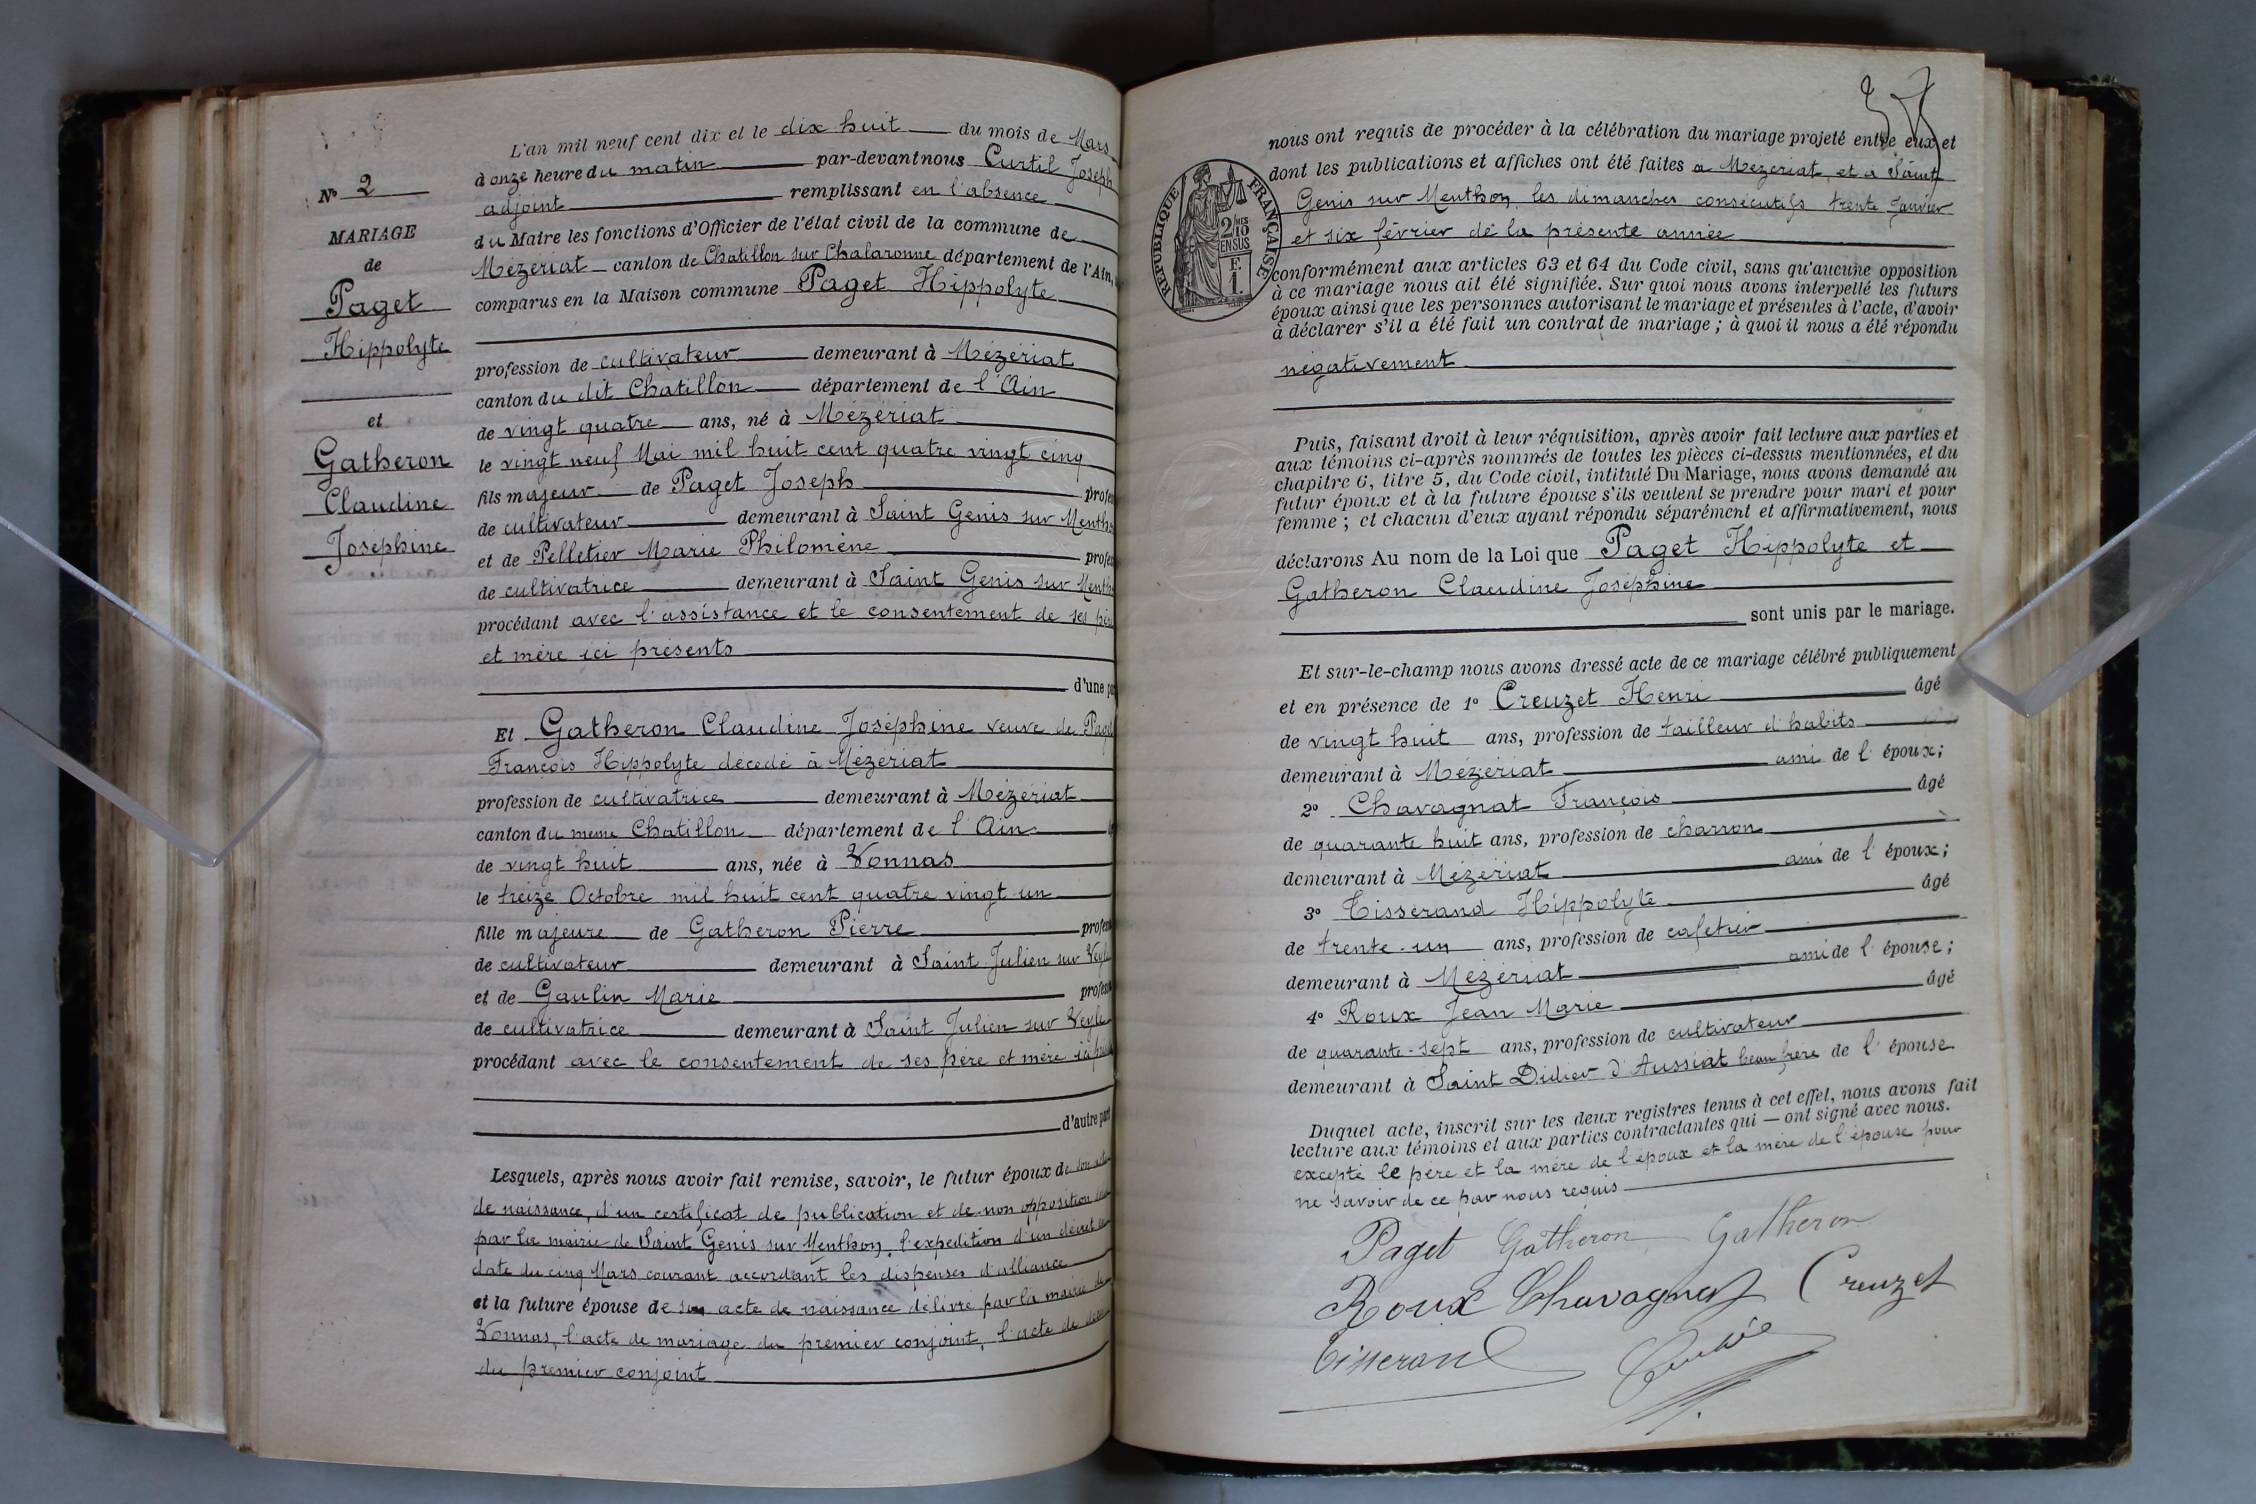 L'an mil neuf cent dix et le dix huit du mois de Mars
à onze heure du matin par-devant nous Curtil Joseph
adjoint remplissant en l'absence
du Maire les fonctions d'Officier de l'état civil de la commune de
Mézériat canton de Chatillon sur Chalaronne département de l'Ain,
comparus en la Maison commune Paget Hippolyte
profession de cultivateur demeurant à Mézériat
canton du dit Chatillon département de l'Ain
de vingt quatre ans, né à Mézériat
le vingt neuf Mai mil huit cent quatre vingt cinq
fils majeur de Paget Joseph profes
de cultivateur demeurant à Saint Genis sur Mentho
et de Pelletier Marie Philomène profes
de cultivatrice demeurant à Saint Genis sur Mentho
procédant avec l'assistance et le consentement de ses père
et mère ici présents
d'une par
Et Gatheron Claudine Joséphine veuve de Paget
François Hippolyte décédé à Mézériat
profession de cultivatrice demeurant à Mézériat
canton du meme Chatillon département de l'Ain
de vingt huit ans, née à Vonnas
le treize Octobre mil huit cent quatre vingt un
fille majeure de Gatheron Pierre profess
de cultivateur demeurant à Saint Julien sur Veyle
et de Gaulin Marie profess
de cultivatrice demeurant à Saint Julien sur Veyle
procédant avec le consentement de ses père et mère ici
d'autre part
Lesquels, après nous avoir fait remise, savoir, le futur époux de son acte
de naissance, d'un certificat de publication et de non opposition
par la mairie de Saint Genis sur Menthon, l'expédition d'un décret
date du cinq Mars courant accordant les dispenses d'alliance
et la future épouse de son acte de naissance délivré par la mairie de
Vonnas, l'acte de mariage du premier conjoint, l'acte de
du premier conjoint
N° 2
MARIAGE
de
Paget
Hippolyte
et
Gatheron
Claudine
Joséphine
37
nous ont requis de procéder à la célébration du mariage projeté entre eux et
dont les publications et affiches ont été faites a Mézériat et à Saint
Genis sur Menthon les dimanches consécutifs trente Janvier
et six février de la présente année
RÉPUBLIQUE FRANÇAISE
2/10
EN SUS
F.
1.
conformément aux articles 63 et 64 du Code civil, sans qu'aucune opposition
à ce mariage nous ait été signifiée. Sur quoi nous avons interpellé les futurs
époux ainsi que les personnes autorisant le mariage et présentes à l'acte, d'avoir
à déclarer s'il a été fait un contrat de mariage ; à quoi il nous a été répondu
négativement
Puis, faisant droit à leur réquisition, après avoir fait lecture aux parties et
aux témoins ci-après nommés de toutes les pièces ci-dessus mentionnées, et du
chapitre 6, titre 5, du Code civil, intitulé Du Mariage, nous avons demandé au
futur époux et à la future épouse s'ils veulent se prendre pour mari et pour
femme ; et chacun d'eux ayant répondu séparément et affirmativement, nous
déclarons Au nom de la Loi que Paget Hippolyte et
Gatheron Claudine Joséphine
sont unis par le mariage.
Et sur-le-champ nous avons dressé acte de ce mariage célébré publiquement
et en présence de 1° Creuzet Henri âgé
de vingt huit ans, profession de tailleur d'habits
demeurant à Mézériat ami de l'époux;
2° Chavagnat François âgé
de quarante huit ans, profession de charron
demeurant à Mézériat ami de l'époux;
3° Tisserand Hippolyte âgé
de trente-un ans, profession de cafetier
demeurant à Mézériat ami de l'épouse;
4° Roux Jean Marie âgé
de quarante-sept ans, profession de cultivateur
demeurant à Saint Didier d'Aussiat beau frère de l'épouse
Duquel acte, inscrit sur les deux registres tenus à cet effet, nous avons fait
lecture aux témoins et aux parties contractantes qui — ont signé avec nous.
excepté le père et la mère de l'époux et la mère de l'épouse pour
ne savoir de ce par nous requis
Paget Gatheron Gatheron
Roux Chavagnat Creuzet
Tisserand